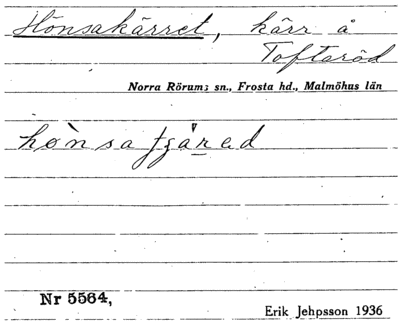 Hönsakärret, kärr å
Toftaröd
Norra Rörums sn., Frosta hd., Malmöhus län
Nr 5564,
Erik Jehpsson 1936